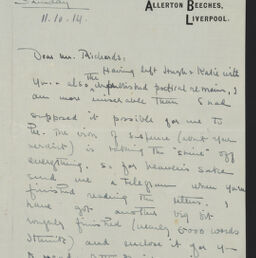 Saturday
11.10.14.
ALLERTON BEECHES,
LIVERPOOL.
Dear Mr. Richards:
Having left Hugh & Katie with
you - also the unpublished poetical remains, I
am more miserable than I had
supposed it possible for me to
be. The virus of suspense (about your
verdict) is taking the "shine" off
everything. So for heaven's sake
send me a Telegram when you've
finished reading the
have got another big bit
roughly finished (nearly 6000 words
) and enclose it for you